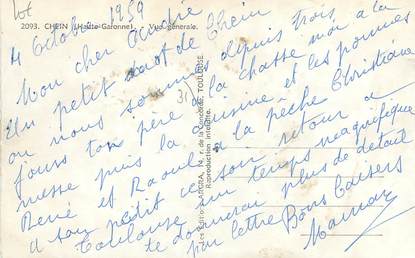 2093. CHEIN (Haute-Garonne). - Vue générale.
4 Octobre 1959
Mon cher André
Un petit mot de Chein
où nous sommes depuis trois
jours ton père à la chasse moi à la
messe puis la cuisine et les pommes
René et Raoul à la pêche Christiane
à son petit retour à
Toulouse un temps magnifique
te donnerai plus de détail
par lettre Bons baisers
Maman
31
Les Editions "LARGRA", N°, r. de la Concorde, TOULOUSE
Reproduction interdite.